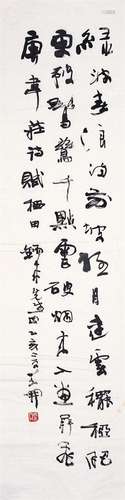 綠波春浪滿前陂極目連雲䆉稏肥
更被鷺鷥千點雪破煙來入畫屏飛
唐韋莊詩賦稻田 先生 乙亥